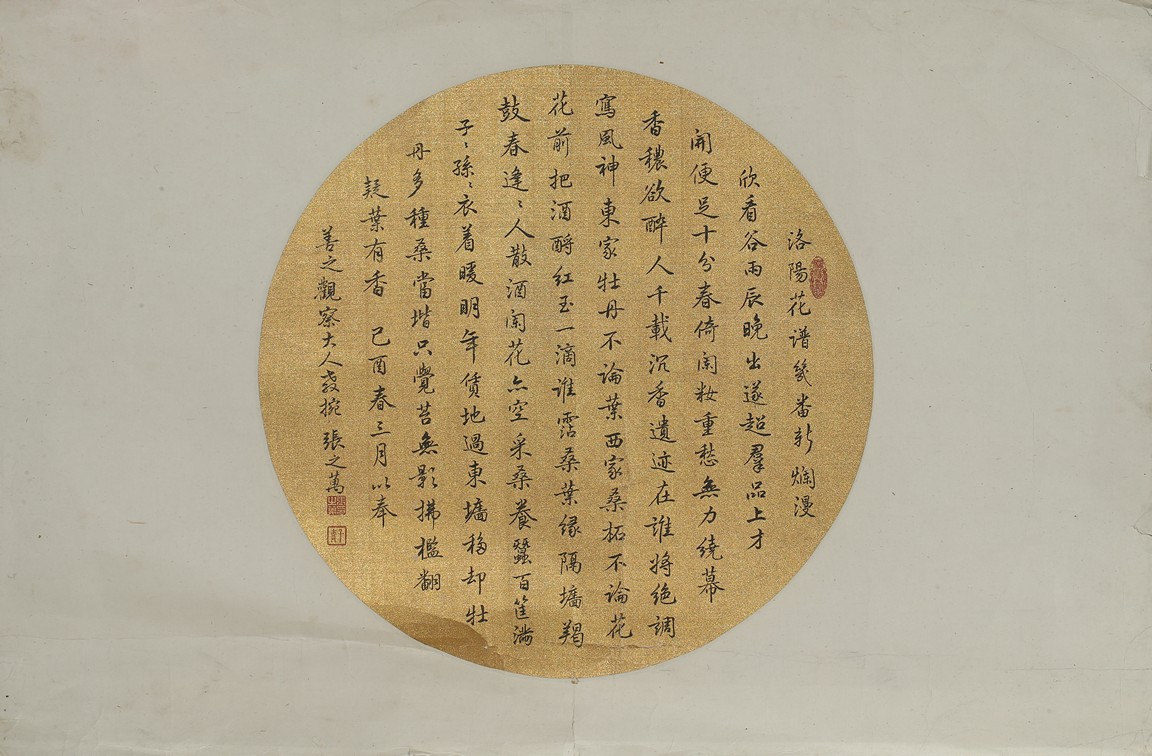 洛陽花谱幾番新爛漫
欣看谷雨辰晚出遂超羣品上才
開便足十分春倚闌妝重愁無力繞幕
香穠欲醉人千載沉香遺迹在誰將絶調
寫風神東家牡丹不論葉西家桑柘不論花
花前把酒酹紅玉一滴誰霑桑葉緣隔墻羯
鼓春逢〻人散酒闌花亦空采桑養蠶百筐滿
子〻孫〻衣着暖明年賃地過東墻移却牡
丹多種桑當堦只覺苔無影拂檻翻
疑葉有香 己酉春三月以奉
善之觀察大人教捥 張之萬